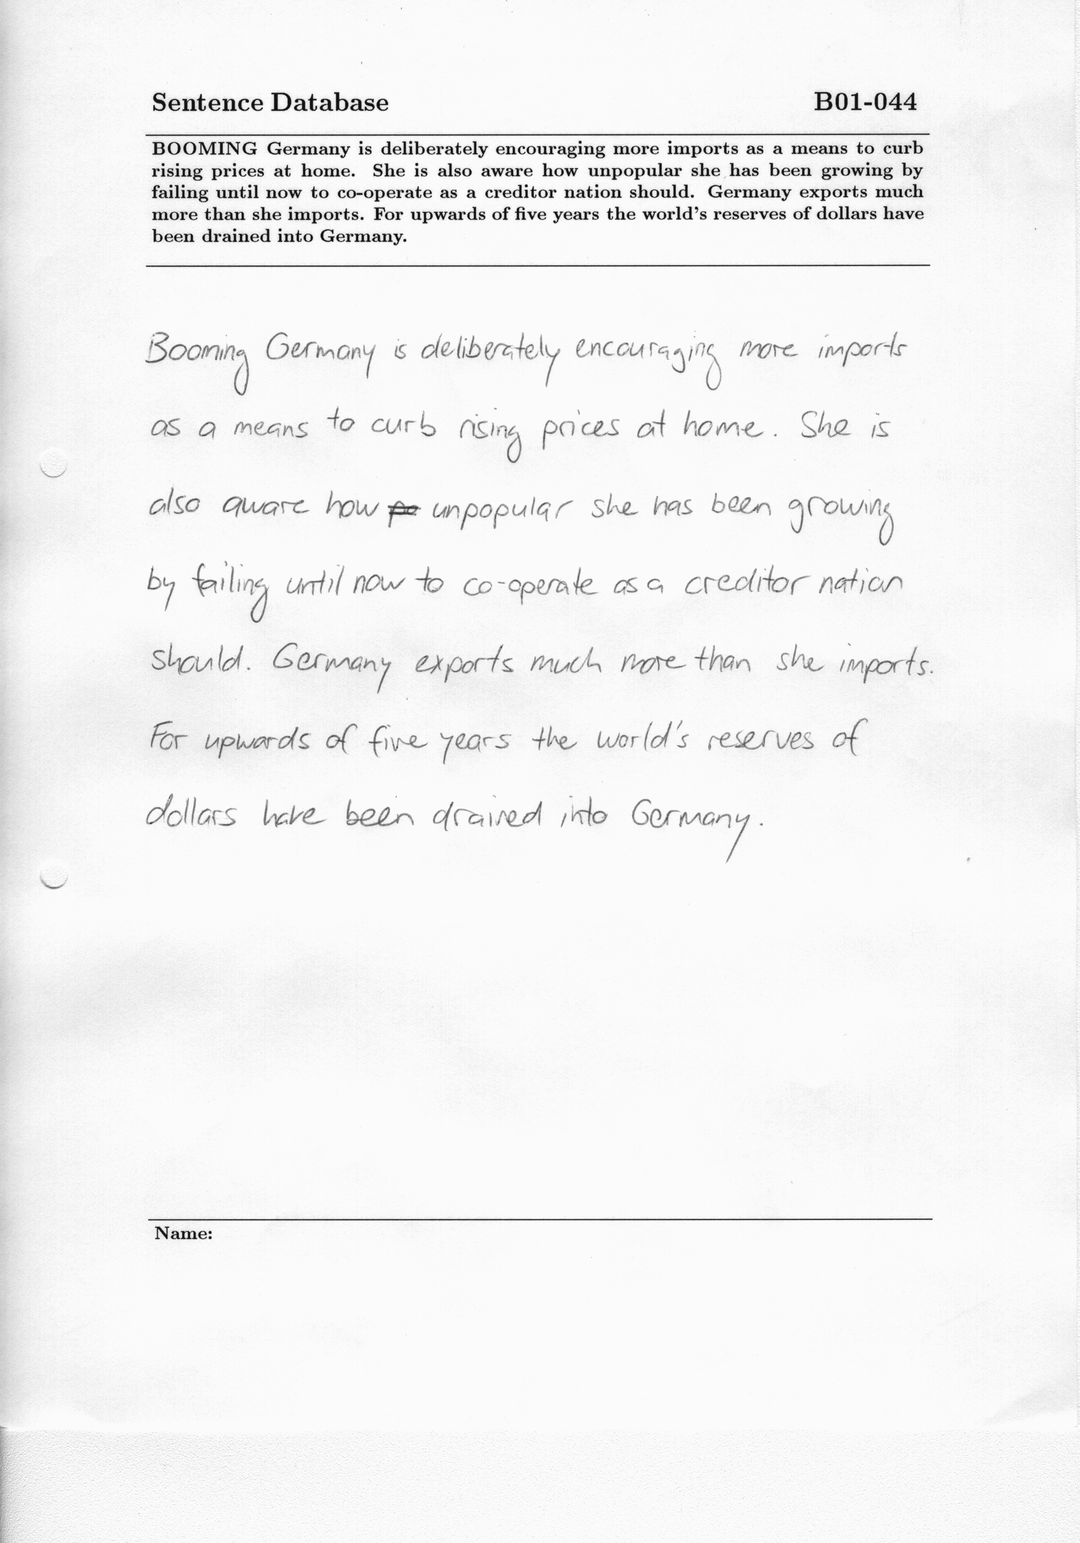 Sentence Database B01-044
BOOMING Germany is deliberately encouraging more imports as a means to curb
rising prices at home. She is also aware how unpopular she has been growing by
failing until now to co-operate as a creditor nation should. Germany exports much
more than she imports. For upwards of five years the world's reserves of dollars have
been drained into Germany.
Booming Germany is deliberately encouraging more imports
as a means to curb rising prices at home. She is
also aware how unpopular she has been growing
by failing until now to co-operate as a creditor nation
should. Germany exports much more than she imports.
For upwards of five years the world's reserves of
dollars have been drained into Germany.
Name: